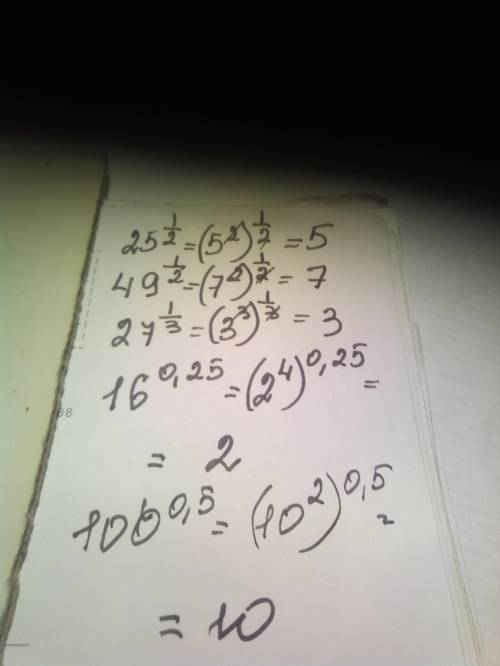 25^{1/2} = (5^2)^{1/2} = 5
49^{1/2} = (7^2)^{1/2} = 7
27^{1/3} = (3^3)^{1/3} = 3
16^{0,25} = (2^4)^{0,25} =
= 2
100^{0,5} = (10^2)^{0,5} =
= 10